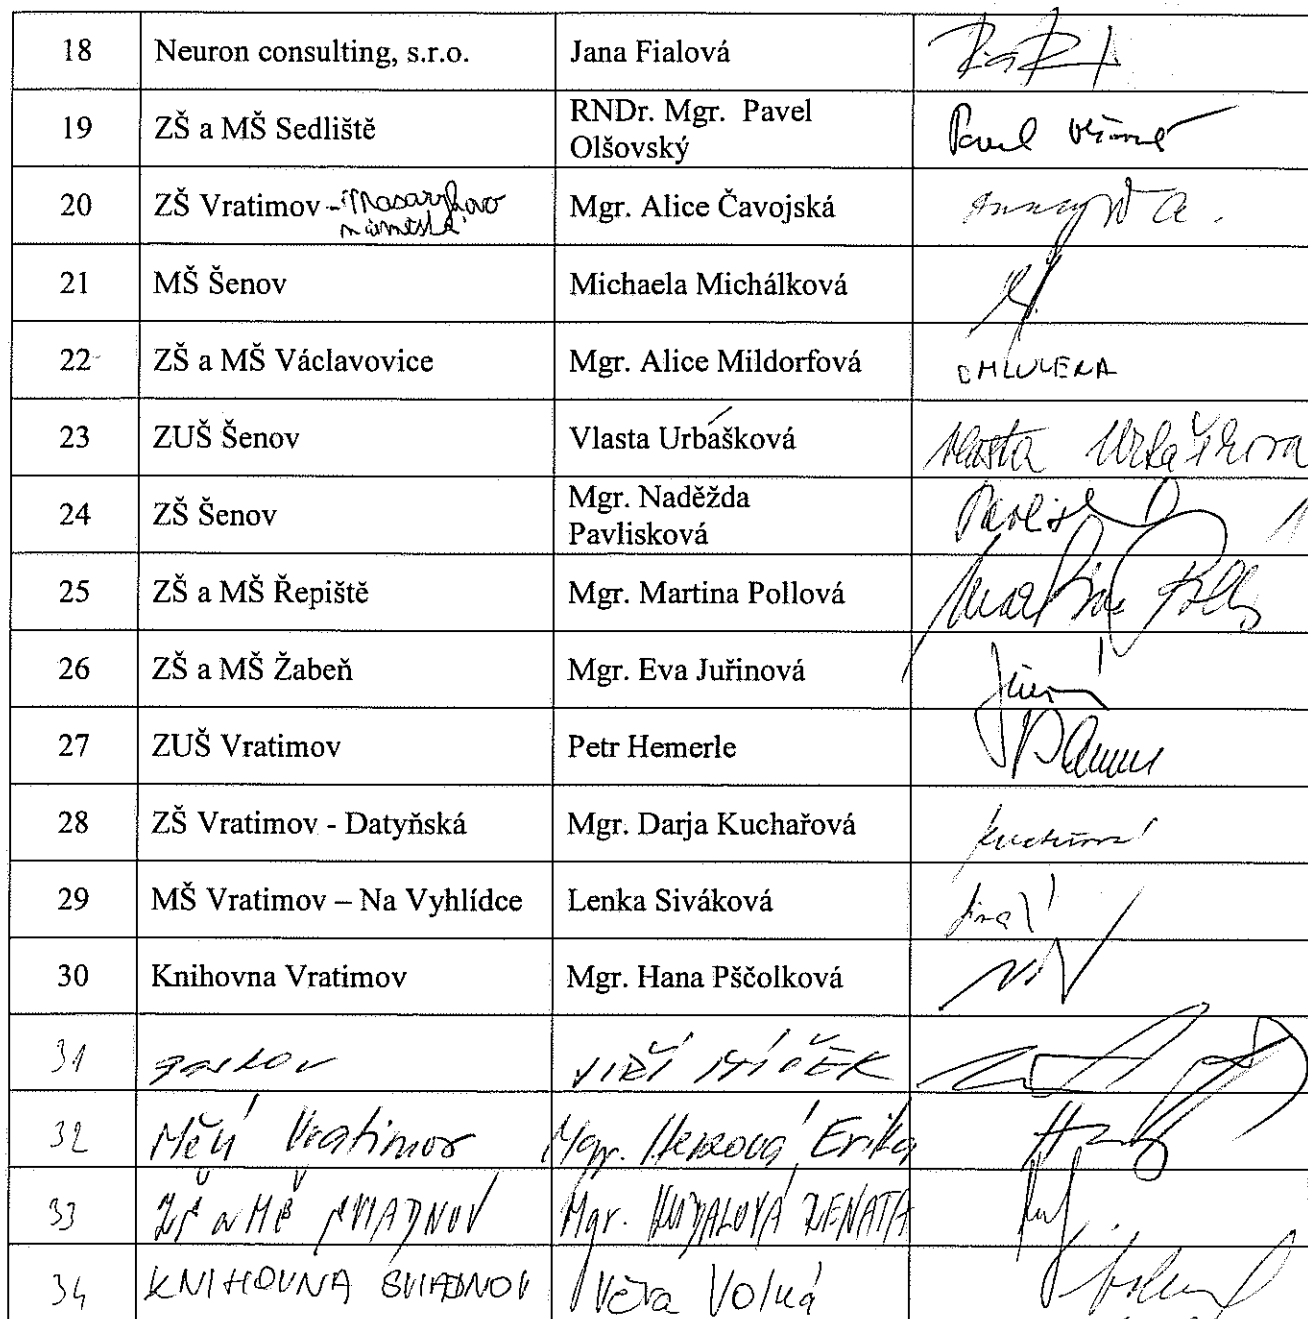 18 Neuron consulting, s.r.o. Jana Fialová
19 ZŠ a MŠ Sedliště RNDr. Mgr. Pavel
Olšovský Pavel
20 ZŠ Vratimov - Masarykovo Mgr. Alice Čavojská
náměstí
21 MŠ Šenov Michaela Michálková
22 ZŠ a MŠ Václavovice Mgr. Alice Mildorfová OMLUVENA
23 ZUŠ Šenov Vlasta Urbášková Vlasta Urbášková
24 ZŠ Šenov Mgr. Naděžda
Pavlisková
25 ZŠ a MŠ Řepiště Mgr. Martina Pollová Martina
26 ZŠ a MŠ Žabeň Mgr. Eva Juřinová
27 ZUŠ Vratimov Petr Hemerle
28 ZŠ Vratimov - Datyňská Mgr. Darja Kuchařová
29 MŠ Vratimov – Na Vyhlídce Lenka Siváková
30 Knihovna Vratimov Mgr. Hana Pščolková
31 JIŘÍ
32 MěÚ Vratimov Mgr. Erika
33 ZŠ a MŠ SVIADNOV Mgr. RENATA
34 KNIHOVNA SVIADNOV Věra Volná